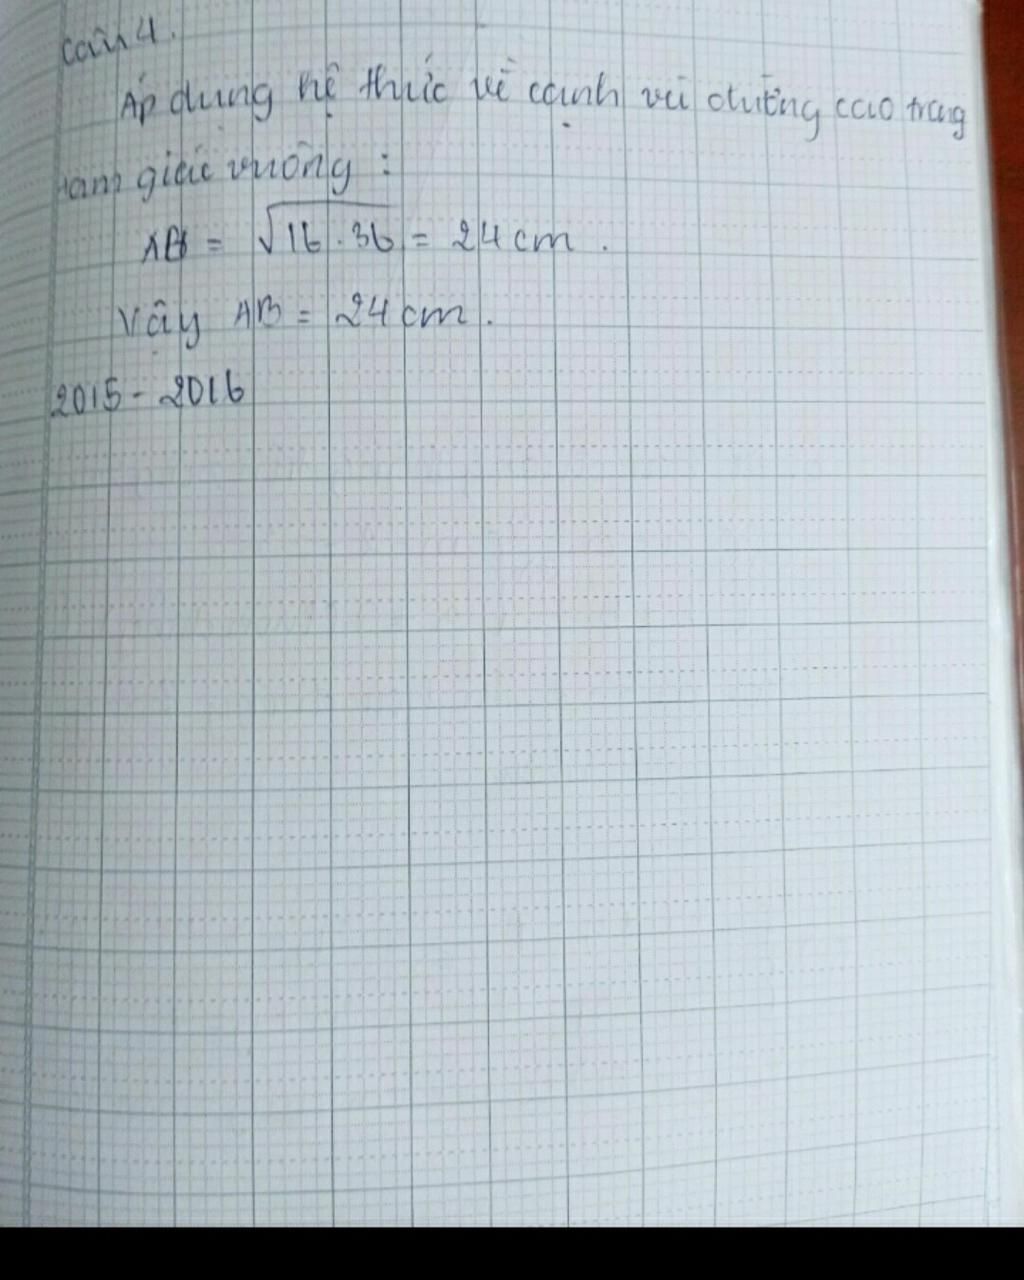 Câu 4.
Áp dụng hệ thức về cạnh và đường cao trong
tam giác vuông :
AB = √16.36 = 24 cm .
Vậy AB = 24 cm .
2015 - 2016